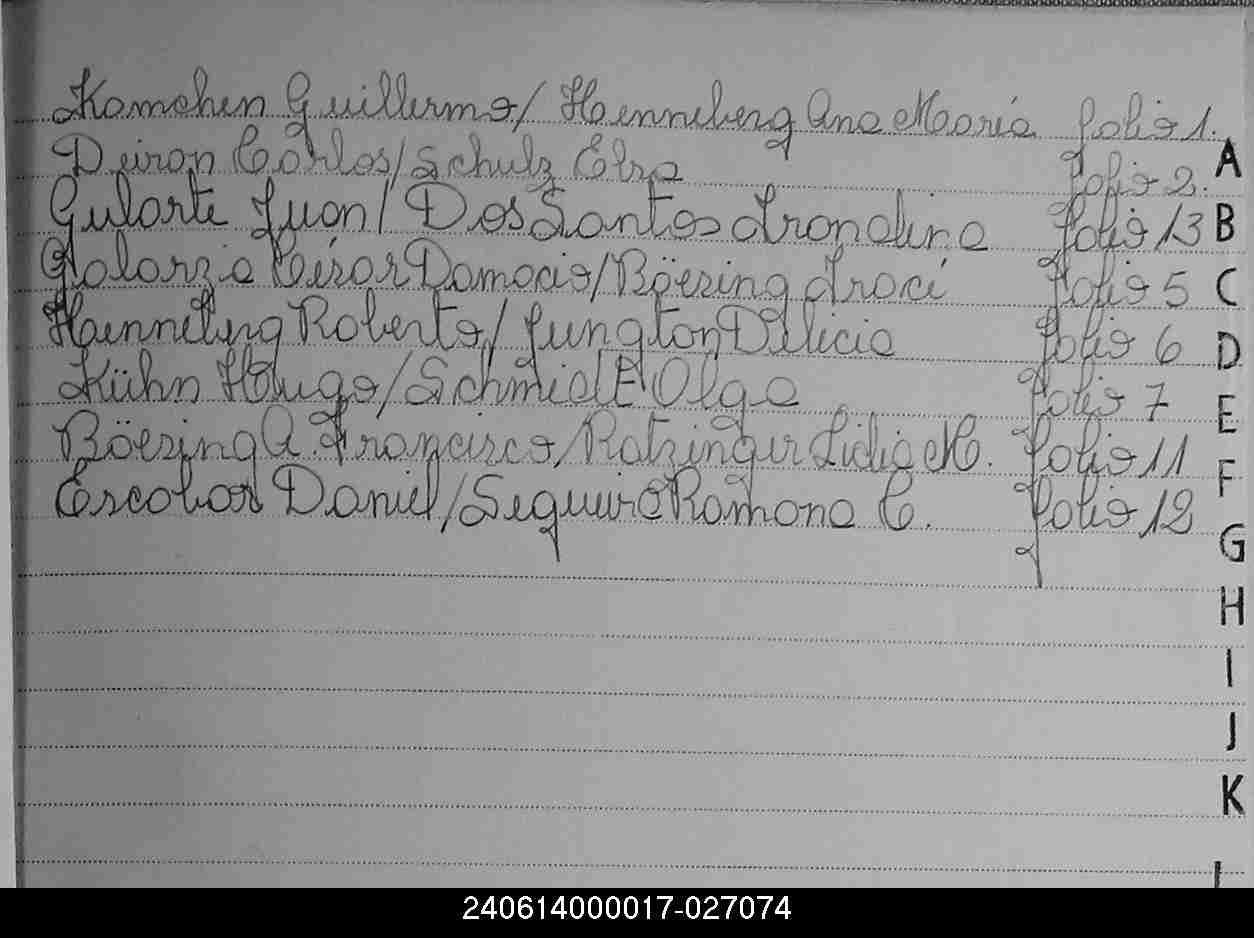 Kamchen Guillermo/ Henneberg Ana María folio 1.
Deiron Carlos/Schulz Elsa folio 2.
Gularte Juan/ Dos Santos Irondina folio 13
Galarza César Damacio/Böesing Iraci folio 5
Henneberg Roberto/Jungton Delicia folio 6
Kühn Hugo/Schmidt Olga folio 7
Böesing A. Francisco/Ratzinger Lidia M. folio 11
Escobar Daniel/Sequeira Ramona C. folio 12
A
B
C
D
E
F
G
H
I
J
K
L
240614000017-027074